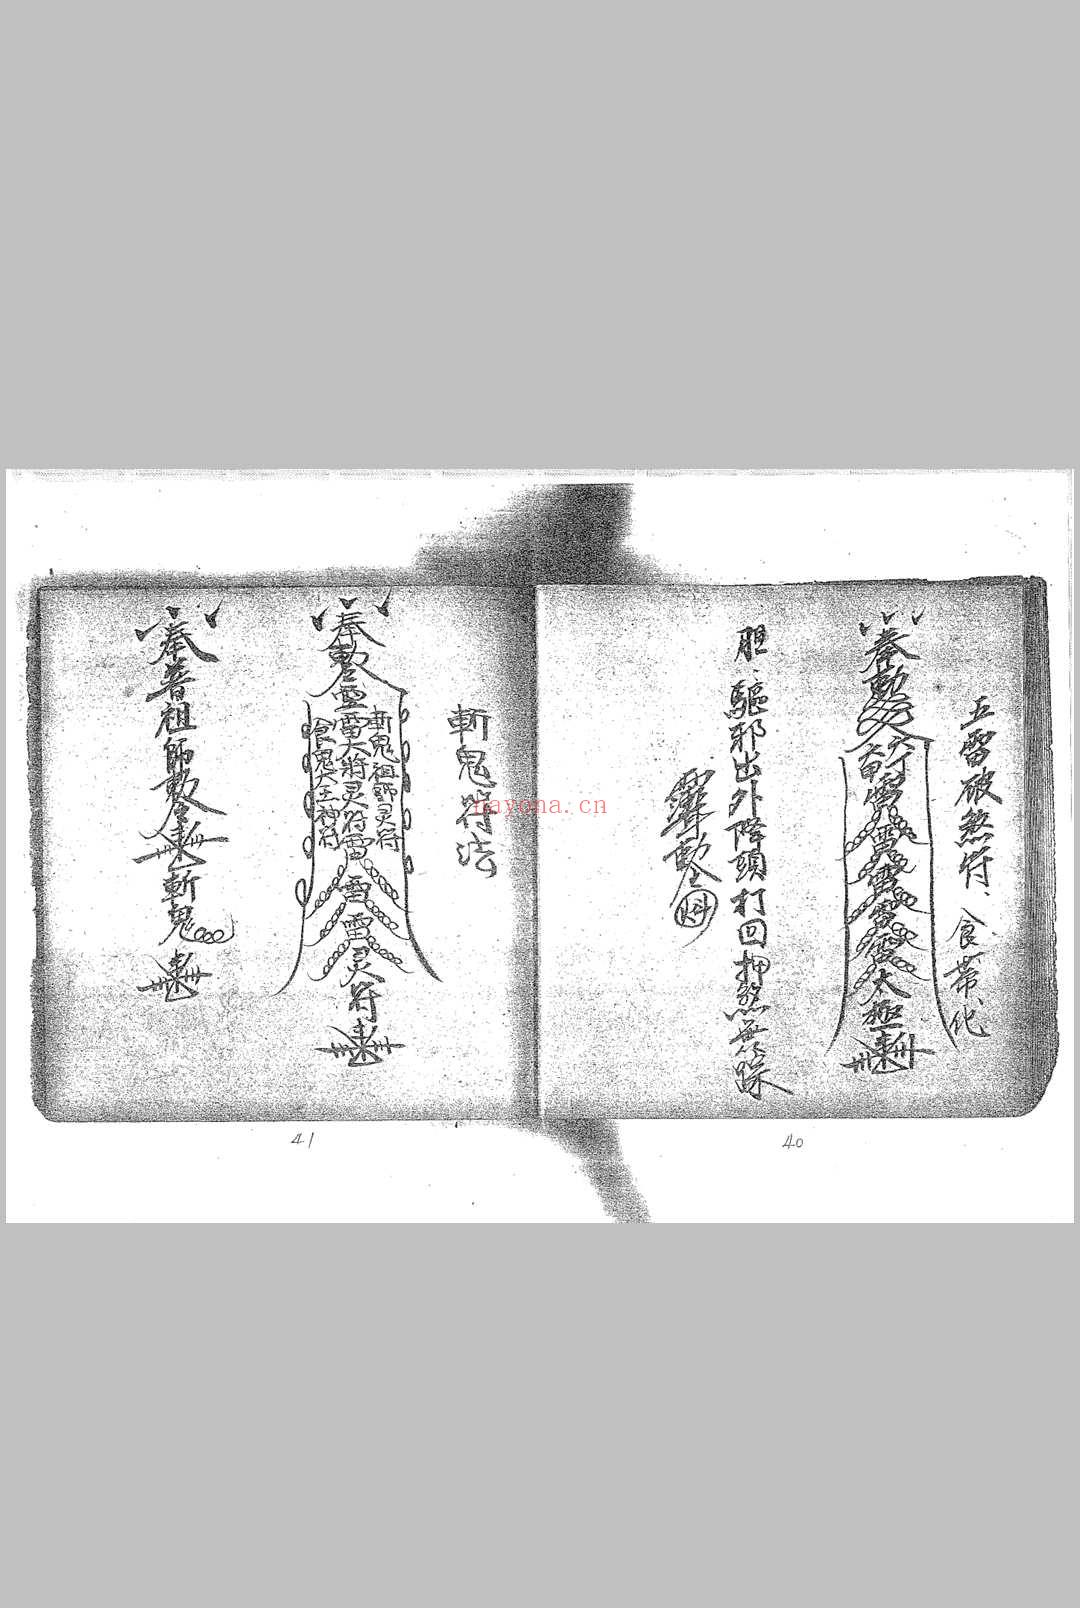 五雷破煞符、食、帶、化
奉勅令
六丁
六甲
雷
太極
胆、驅邪出外降頭打回押煞無踪
勅令
40
斬鬼符法
奉勅令
斬鬼祖師灵符
雷大將灵符雷
食鬼大王神符
雷雷灵符
奉普祖師勅令
斬鬼
41
nayona.cn